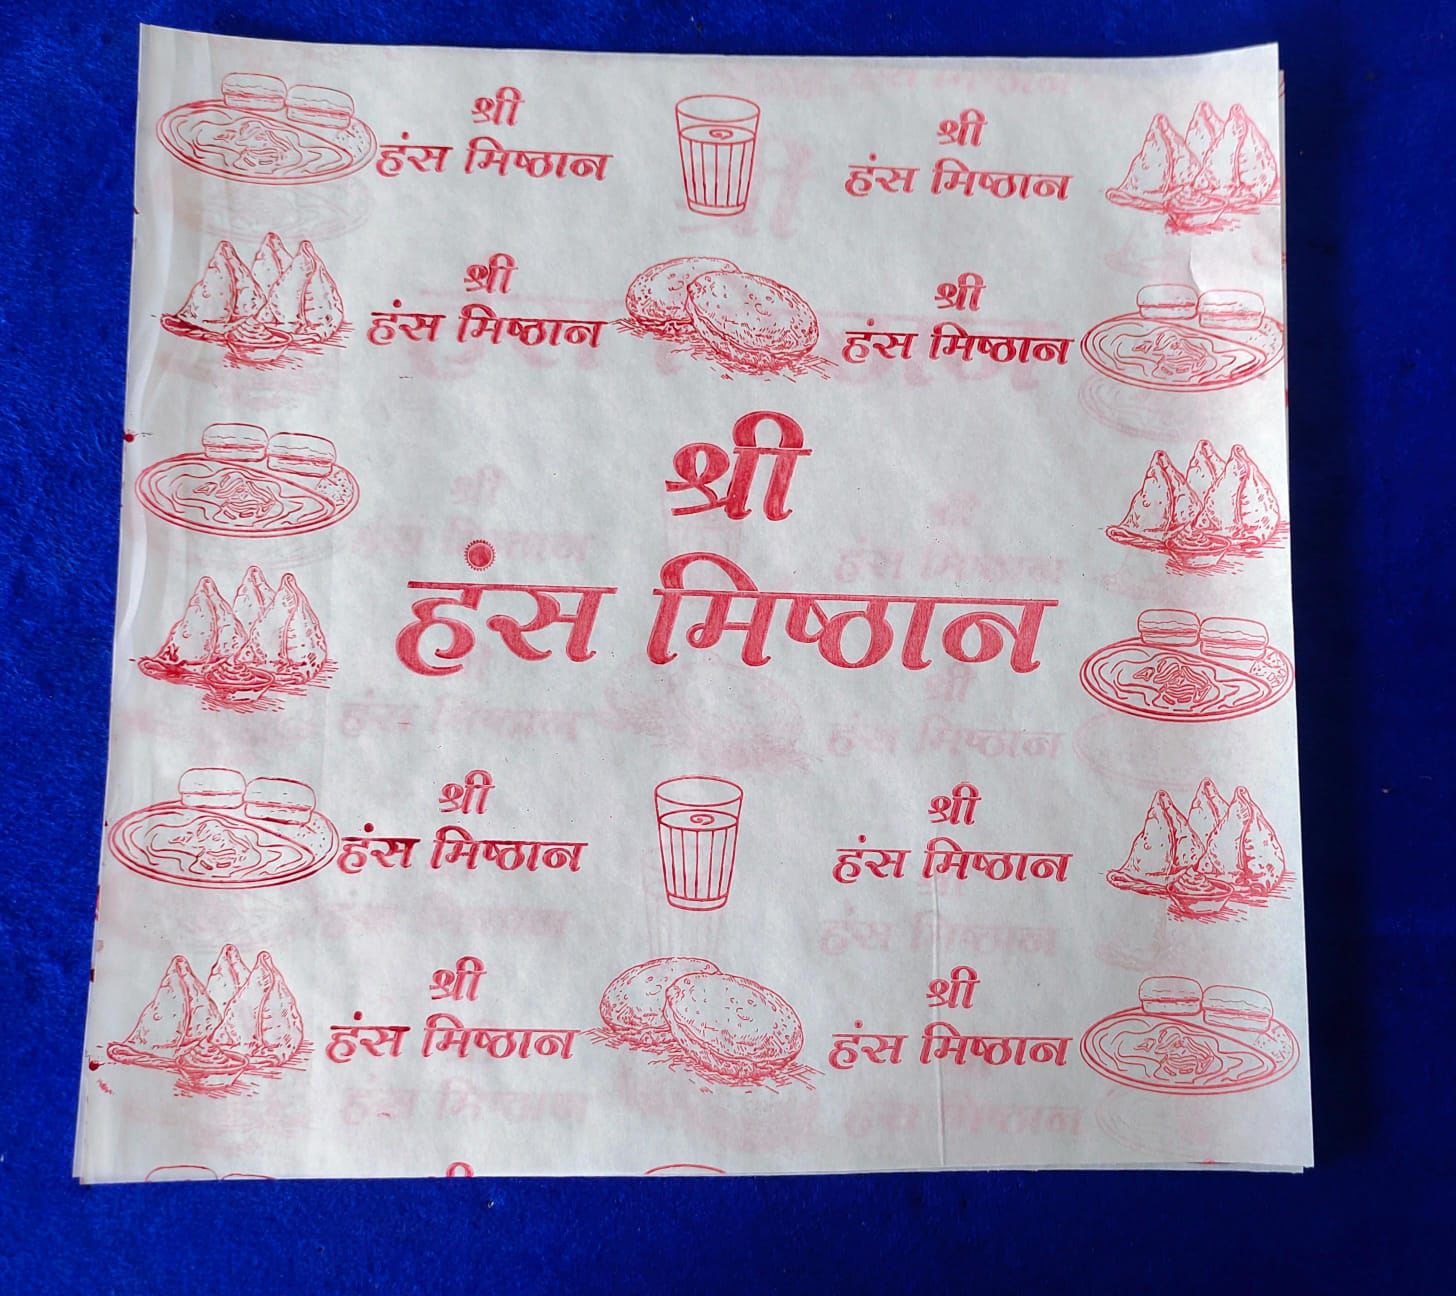 श्री
हंस मिष्ठान
श्री
हंस मिष्ठान
श्री
हंस मिष्ठान
श्री
हंस मिष्ठान
श्री
हंस मिष्ठान
श्री
हंस मिष्ठान
श्री
हंस मिष्ठान
श्री
हंस मिष्ठान
श्री
हंस मिष्ठान